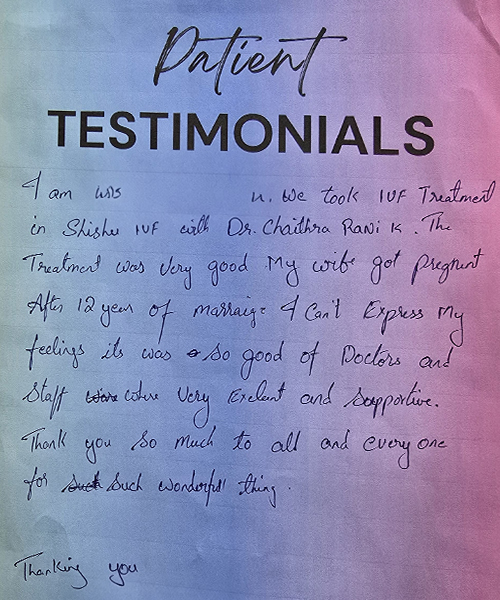 Patient
TESTIMONIALS
I am
n. We took IVF Treatment
in Shishu IVF with Dr. Chaithra Rani K. The
Treatment was Very good My wife got pregnant
After 12 year of marraige I Can't Express My
feelings its was so good of Doctors and
Staff were Very Exelent and Supportive.
Thank you So much to all and every one
for Such wonderful thing.
Thanking you